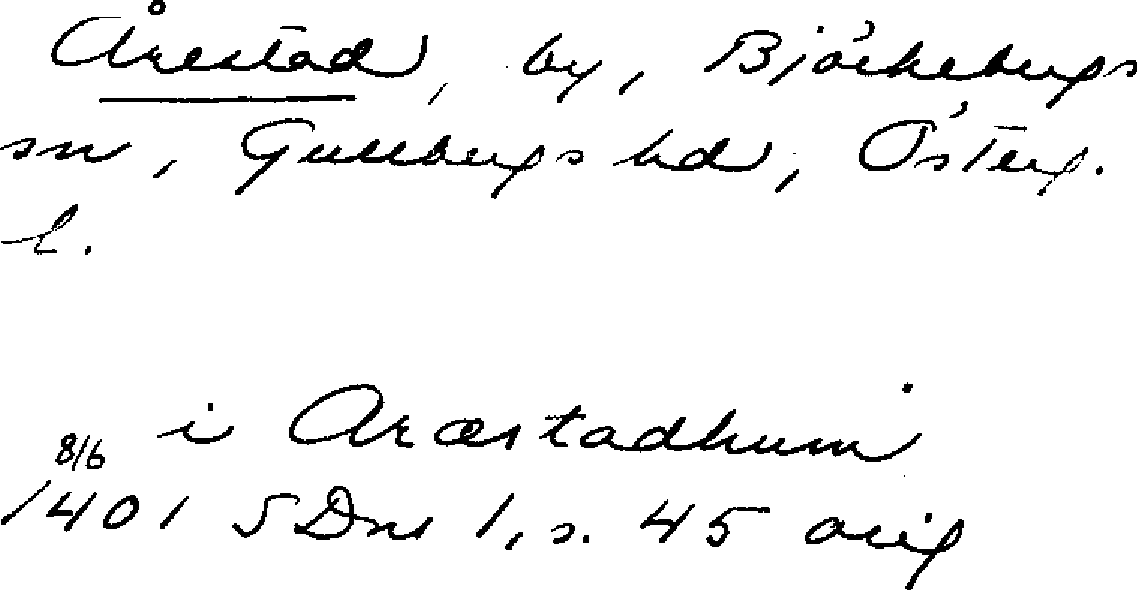 Årestad, by, Björkebergs
sn, Gullbergs hd, Österg.
l.
i Aræstadhum
8/6
1401 SDns 1, s. 45 orig